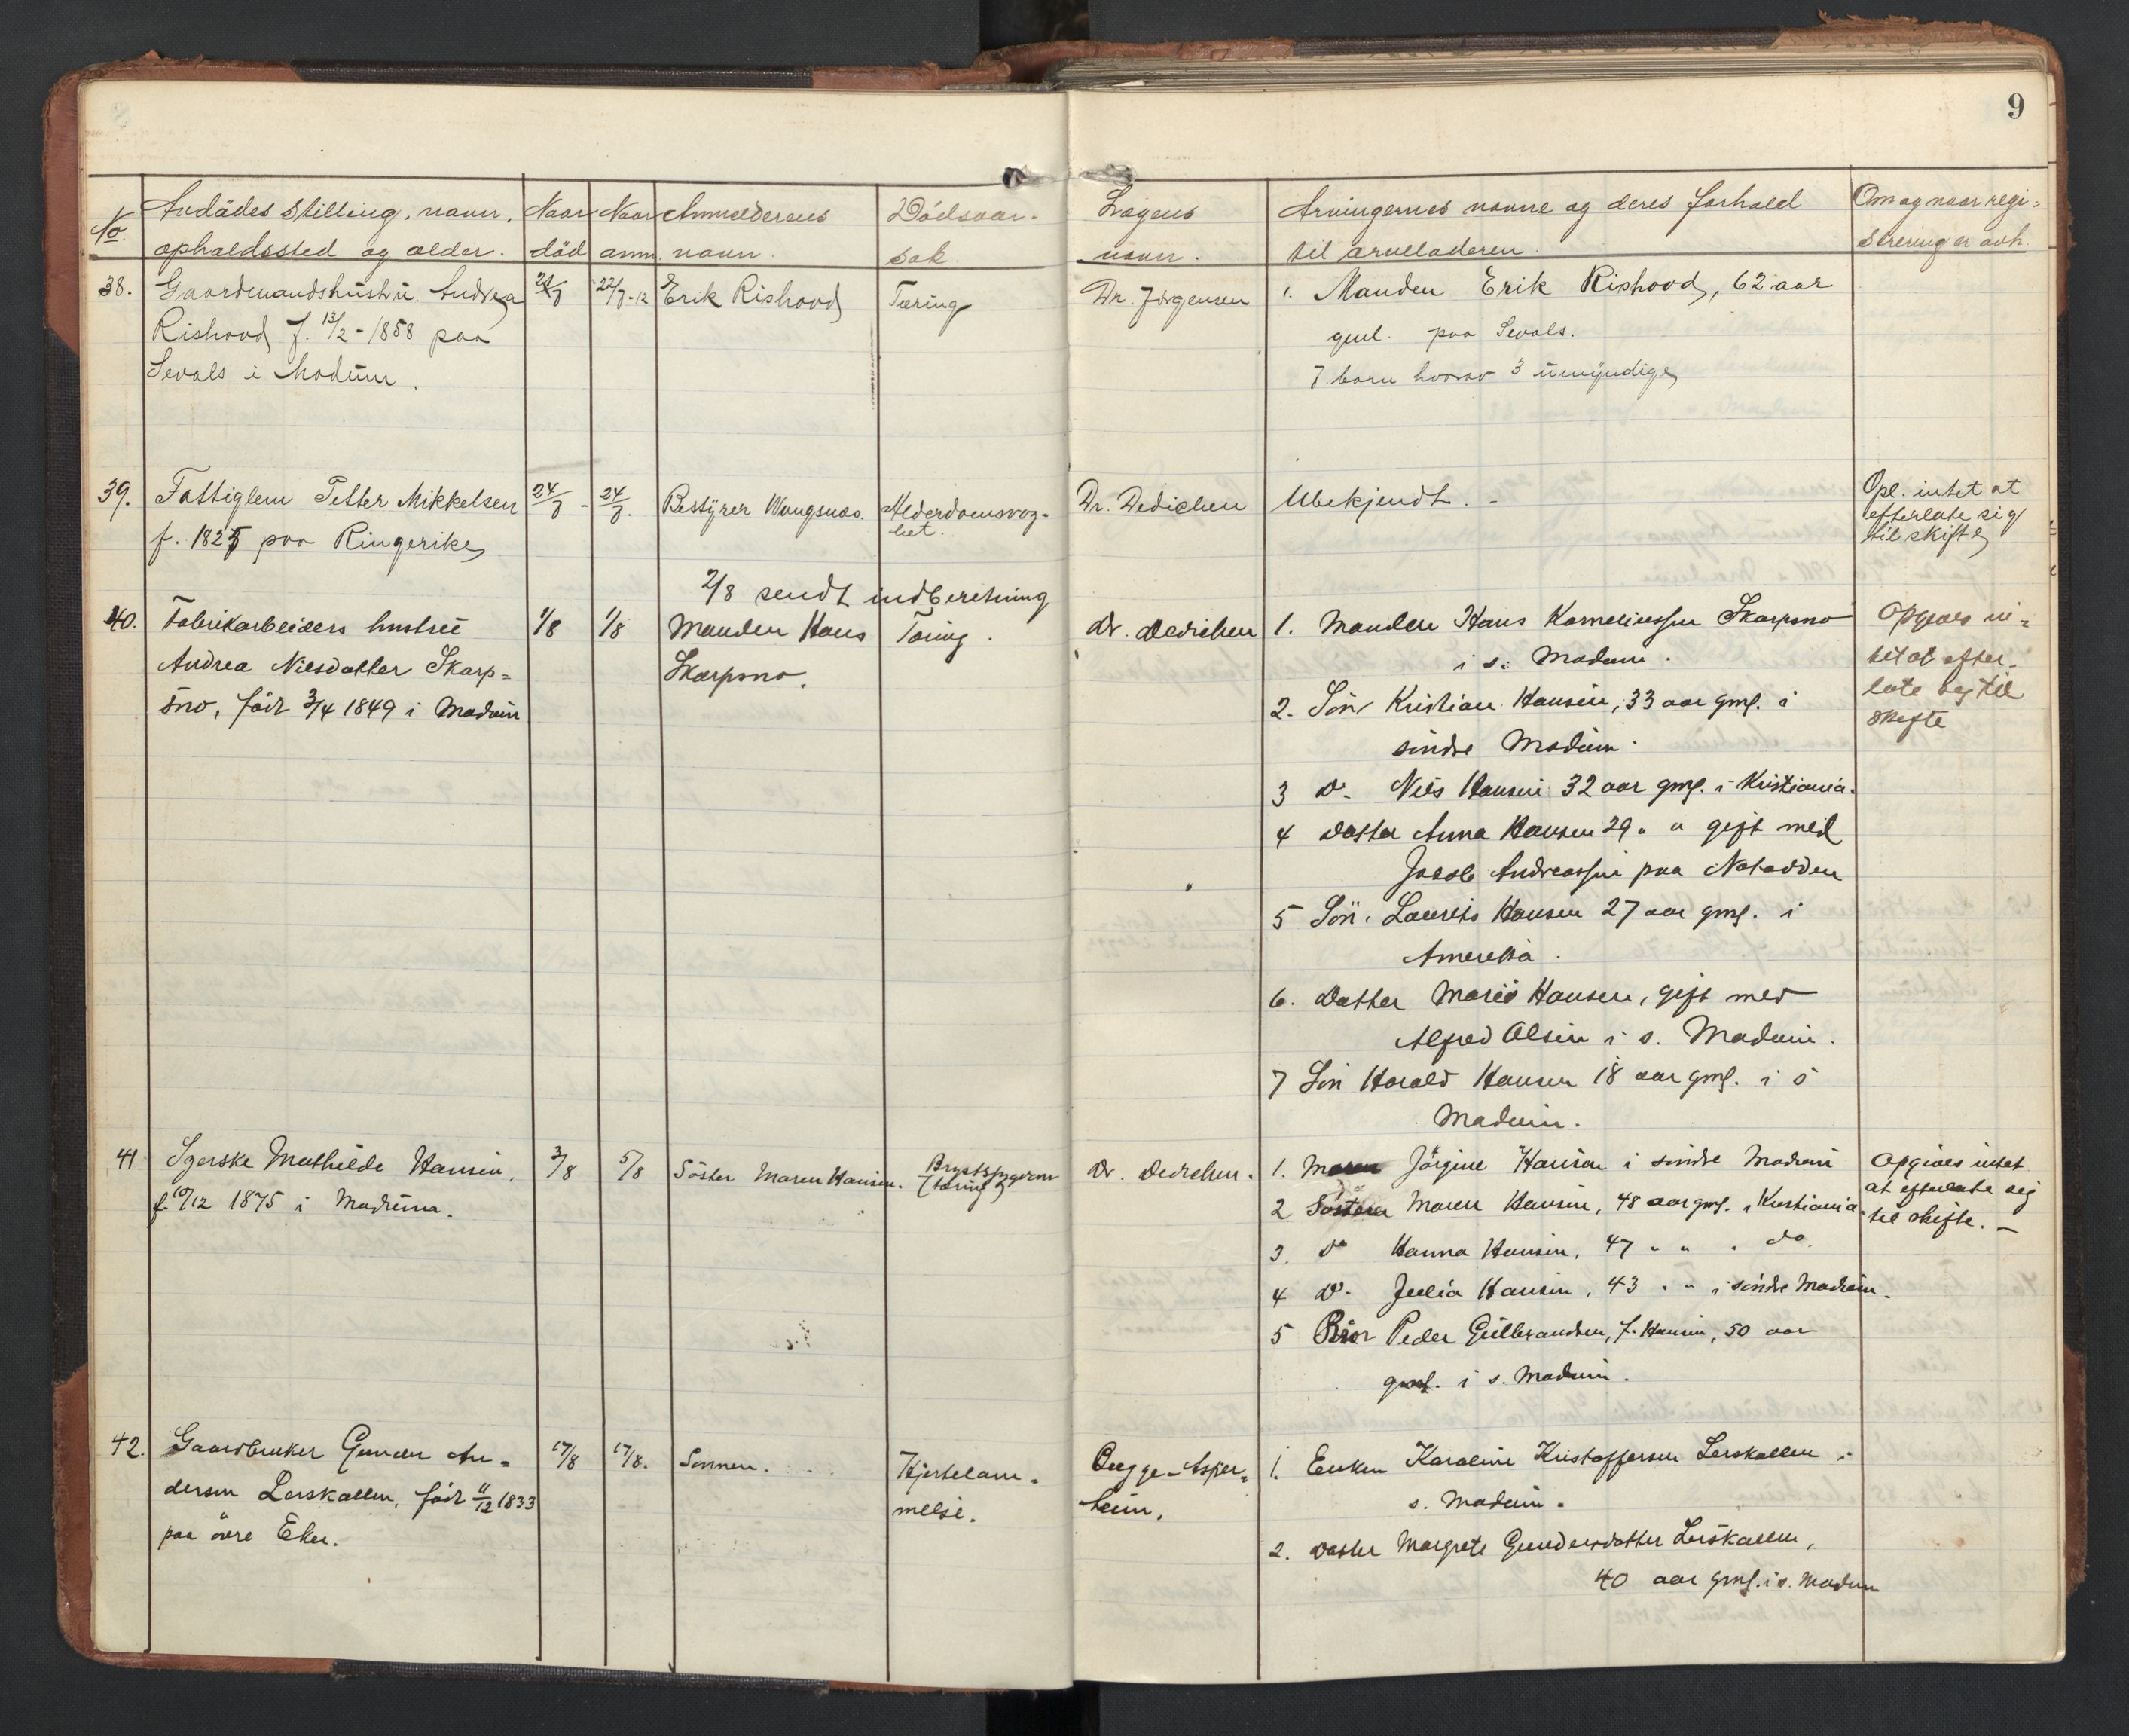 9
No.
Avdödes stilling, navn,
opholdssted og alder.
Naar
död
Naar
anm.
Anmelderens
navn.
Dödsaar-
sak.
Lægens
navn.
Arvingernes navne og deres forhold
til arveladeren.
Om og naar regi-
strering er avh.
38.
Gaardmandshustru Andrea
Rishovd f. 13/2 - 1858 paa
Sevals i Modum.
22/7-12
Erik Rishovd
Tæring
Dr. Jörgensen
1. Manden Erik Rishovd, 62 aar
gml. paa Sevals.
7 barn hvorav 3 umyndige
39.
Fattiglem Petter Mikkelsen
f. 1825 paa Ringerike
24/7 -
24/7.
Bestyrer Wangsnæs.
Alderdomssvag-
het.
Dr. Dedichen
Ubekjendt. -
Opl. intet at
efterlate sig
til skifte
2/8 sendt indberetning
40.
Fabrikarbeiders hustru
Andrea Nilsdatter Skarp-
sno, född 3/4 1849 i Modum
1/8
1/8
Manden Hans
Skarpsno.
Tæring.
Dr. Dedichen
1. Manden Hans Korneliussen Skarpsno
i s. Modum.
2. Sön Kristian Hansen, 33 aar gml. i
söndre Modum.
3 do. Nils Hansen 32 aar gml. i Kristiania.
4 Datter Anna Hansen 29 " " gift med
Jacob Andreassen paa Notodden
5 Sön. Laurits Hansen 27 aar gml. i
Amerika.
6. Datter Marie Hansen, gift med
Alfred Olsen i s. Modum.
7 Sön Harald Hansen 18 aar gml. i s
Modum.
Opgives in-
tet at efter-
late sig til
skifte
41
Syerske Mathilde Hansen,
f. 10/12 1875 i Modum.
3/8
5/8
Söster Maren Hansen.
Brystsygdom
(tæring)
Dr. Dedichen.
1. Jörgine Hansen i söndre Modum
2 Söster Maren Hansen, 48 aar gml. i Kristiania
3. do Hanna Hansen, 47 " " " do.
4 do. Julia Hansen, 43 " " i söndre Modum.
5 Bror Peder Gulbrandsen, f. Hansen, 50 aar
gml. i s. Modum.
Opgives intet
at efterlate sig
til skifte. -
42.
Gaardbruker Gunder An-
dersen Lerskallen, född 11/12 1833
paa övre Eker.
17/8
17/8.
Sönnen.
Hjertelam-
melse.
Bugge-Asper-
heim.
1. Enken Karoline Kristoffersen Lerskallen i
s. Modum.
2. Datter Margrete Gundersdatter Lerskallen,
40 aar gml. i s. Modum